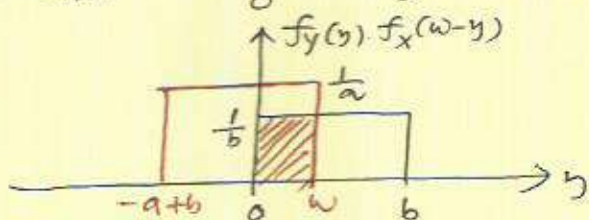 f_Y(y). f_X(w-y)
1/a
1/b
-a+b 0 w b y